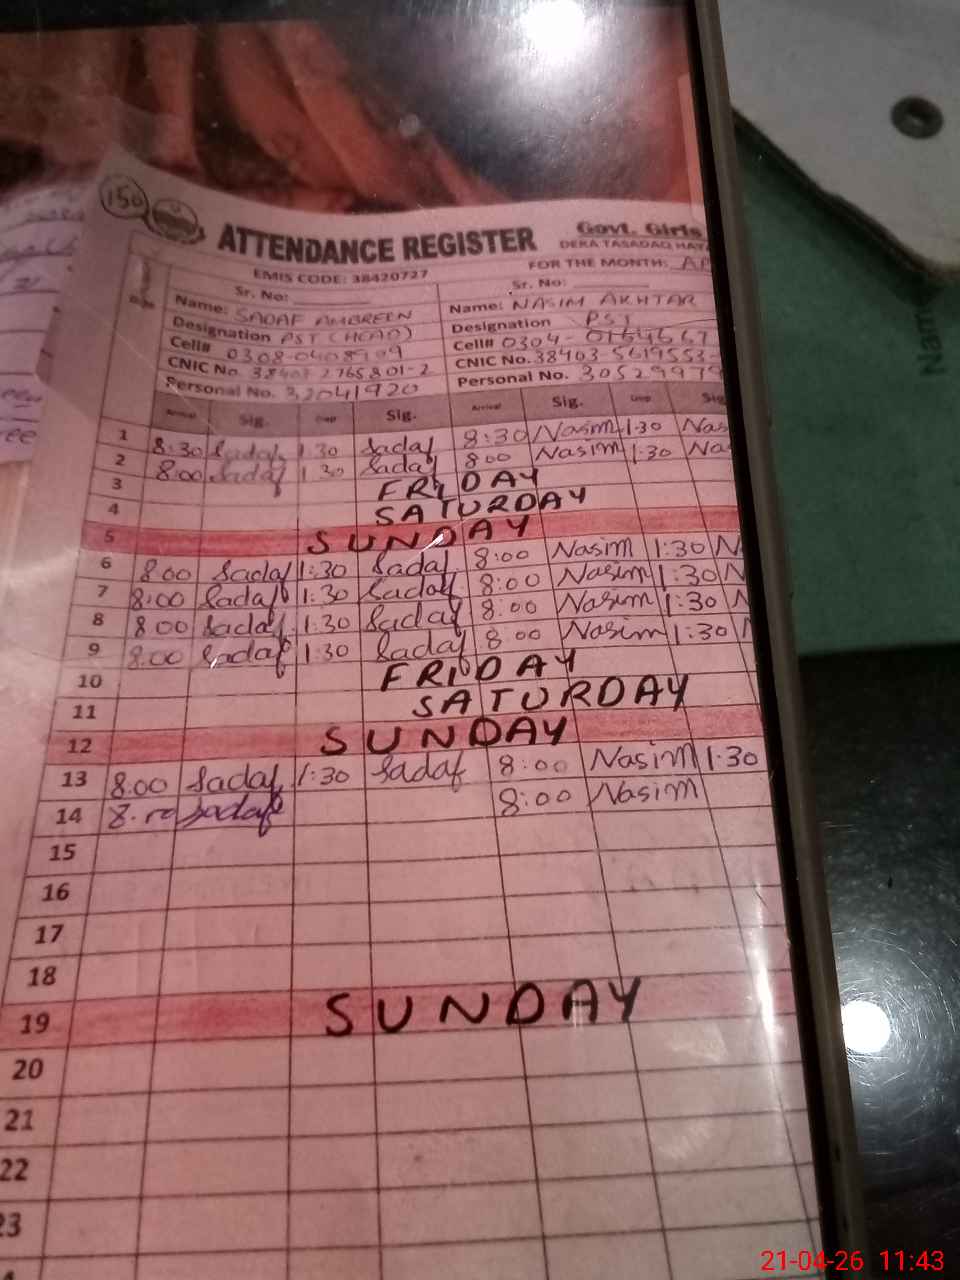 150
ATTENDANCE REGISTER Govt. Girls
DERA TASADAQ HAYA
EMIS CODE: 38420727 FOR THE MONTH: AP
Sr. No: Sr. No:
Date
Name: SADAF AMBREEN Name: NASIM AKHTAR
Designation PST (HEAD) Designation PST
Cell# 0308-0408909 Cell# 0304-
CNIC No. 38403 2765801-2 CNIC No. 38403-5619553-
Personal No. 32041920 Personal No. 30529979
Arrival Sig. Dep Sig. Arrival Sig. Dep Sig
1 8:30 Sadaf 1:30 Sadaf 8:30 Nasim 1:30 Nas
2 8:00 Sadaf 1:30 Sadaf 8:00 Nasim 1:30 Na
3 FRIDAY
4 SATURDAY
5 SUNDAY
6 8:00 Sadaf 1:30 Sadaf 8:00 Nasim 1:30 N
7 8:00 Sadaf 1:30 Sadaf 8:00 Nasim 1:30 N
8 8:00 Sadaf 1:30 Sadaf 8:00 Nasim 1:30 N
9 8:00 Sadaf 1:30 Sadaf 8:00 Nasim 1:30
10 FRIDAY
11 SATURDAY
12 SUNDAY
13 8:00 Sadaf 1:30 Sadaf 8:00 Nasim 1:30
14 Sadaf 8:00 Nasim
15
16
17
18
19 SUNDAY
20
21
22
23
Name
21-04-26 11:43